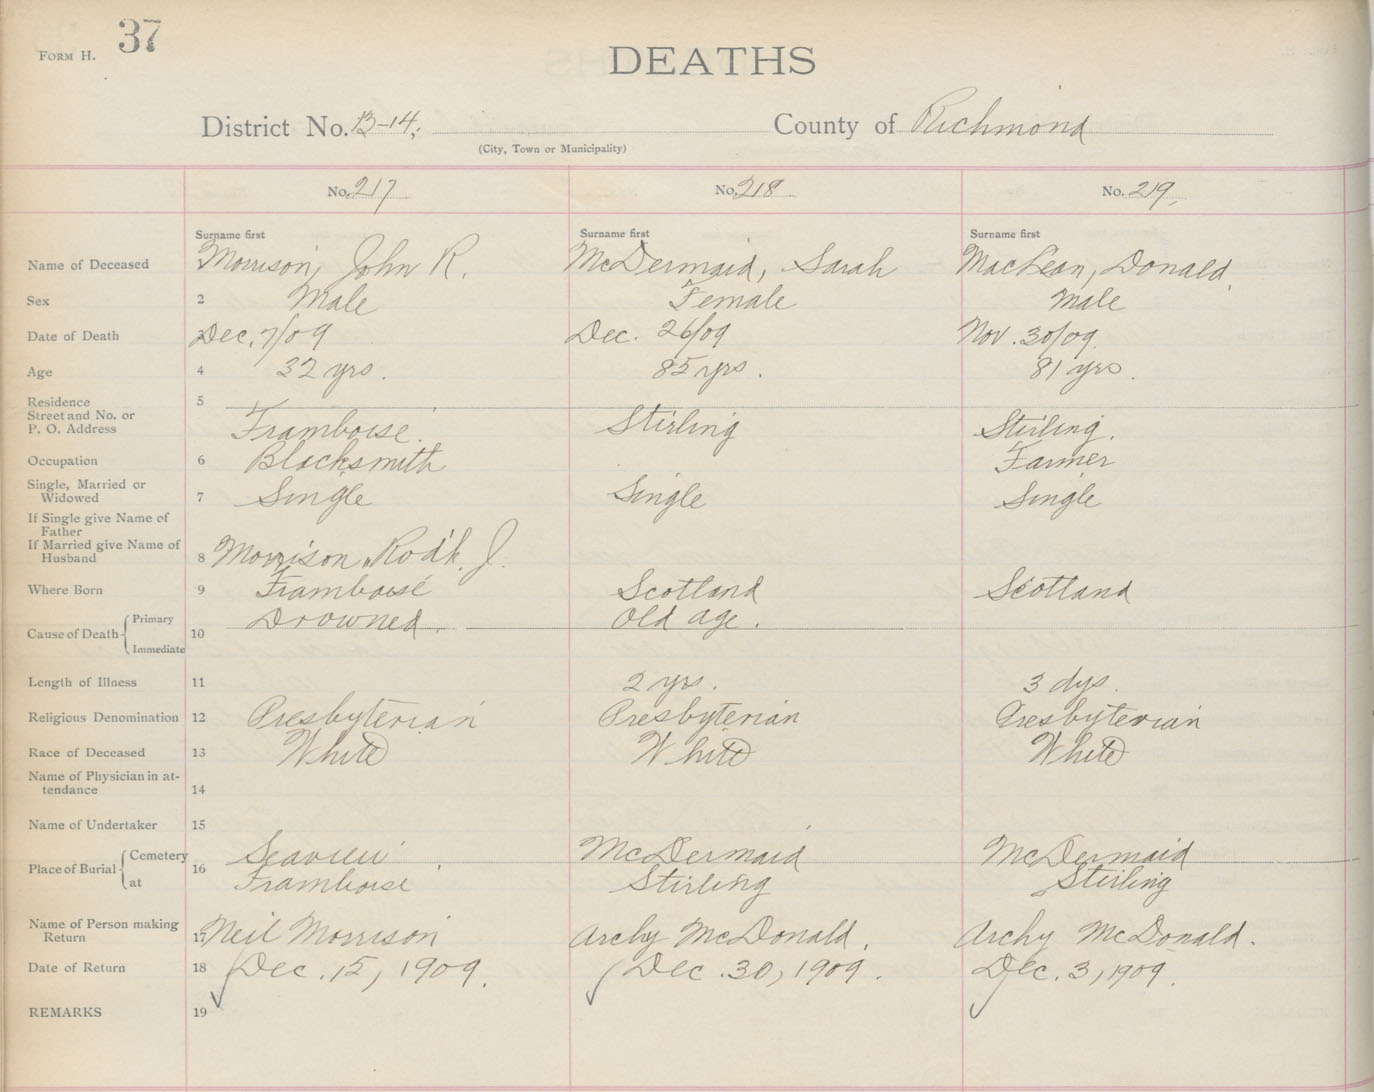 FORM H. 37
DEATHS
District No. B-14, County of Richmond
(City, Town or Municipality)
No. 217 No. 218 No. 219,
Surname first Surname first Surname first
Name of Deceased 1 Morrison, John R. McDermaid, Sarah MacLean, Donald,
Sex 2 Male Female Male
Date of Death 3 Dec. 7/09 Dec. 26/09 Nov. 30/09.
Age 4 32 yrs. 85 yrs. 81 yrs.
Residence 5
Street and No. or
P. O. Address Framboise. Stirling Stirling.
Occupation 6 Blacksmith Farmer
Single, Married or
Widowed 7 Single Single Single
If Single give Name of
Father
If Married give Name of
Husband 8 Morrison, Rod'k. J.
Where Born 9 Framboise Scotland Scotland
Cause of Death Primary 10 Drowned. Old age.
Immediate
Length of Illness 11 2 yrs. 3 dys.
Religious Denomination 12 Presbyterian Presbyterian Presbyterian
Race of Deceased 13 White White White
Name of Physician in at-
tendance 14
Name of Undertaker 15
Place of Burial Cemetery 16 Seaview McDermaid McDermaid
at Framboise Stirling Stirling
Name of Person making
Return 17 Neil Morrison Archy McDonald. Archy McDonald.
Date of Return 18 Dec. 15, 1909. Dec. 30, 1909. Dec. 3, 1909.
REMARKS 19